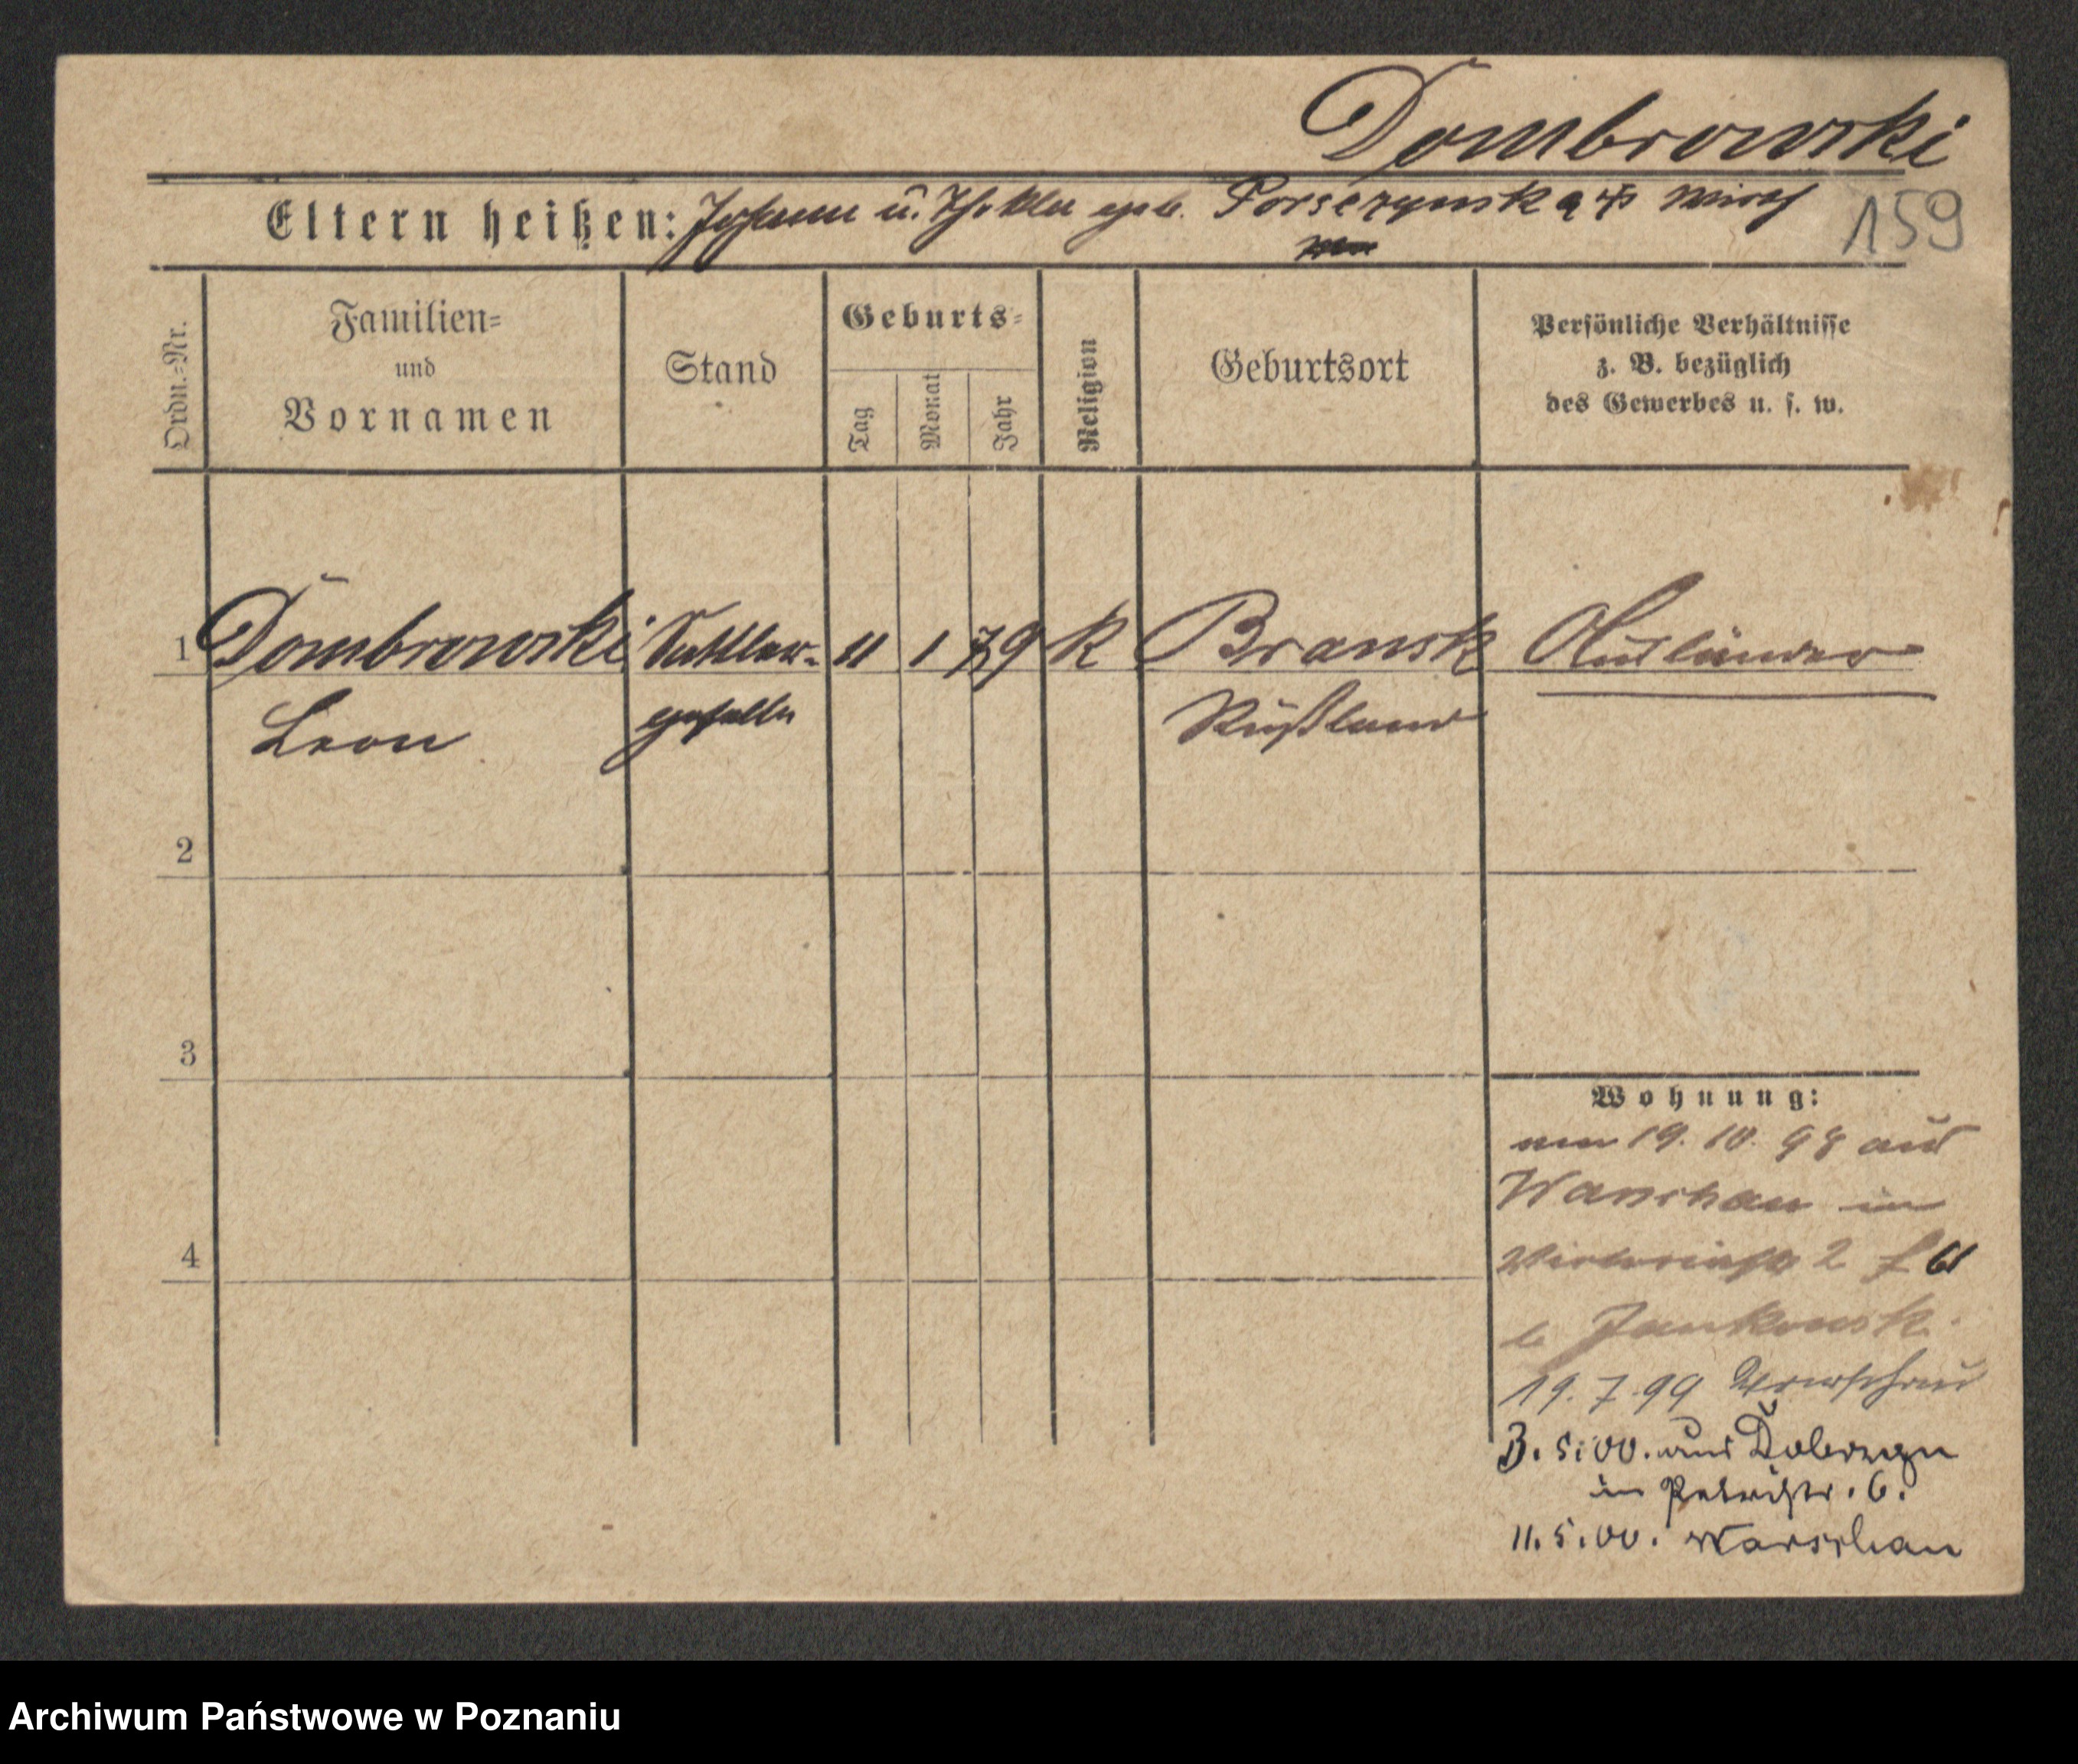 Dombrowski
Eltern heißen: Johann u. Thekla geb. Porserzynska Wirth
159
Ordn.-Nr.
Familien- und Vornamen
Stand
Geburts-
Tag
Monat
Jahr
Religion
Geburtsort
Persönliche Verhältnisse
z. B. bezüglich
des Gewerbes u. s. w.
1 Dombrowski Sattler- 11 1 79 K Bransk Ausländer
Leon geselle Rußland
2
3
Wohnung:
19.10.98 aus
Warschau in
4
Victoriastr 2
b Jankowsk
19.7.99 Warschau
3.5.00. aus Dobrzyn
in Petristr. 6.
11.5.00. Warschau
Archiwum Państwowe w Poznaniu